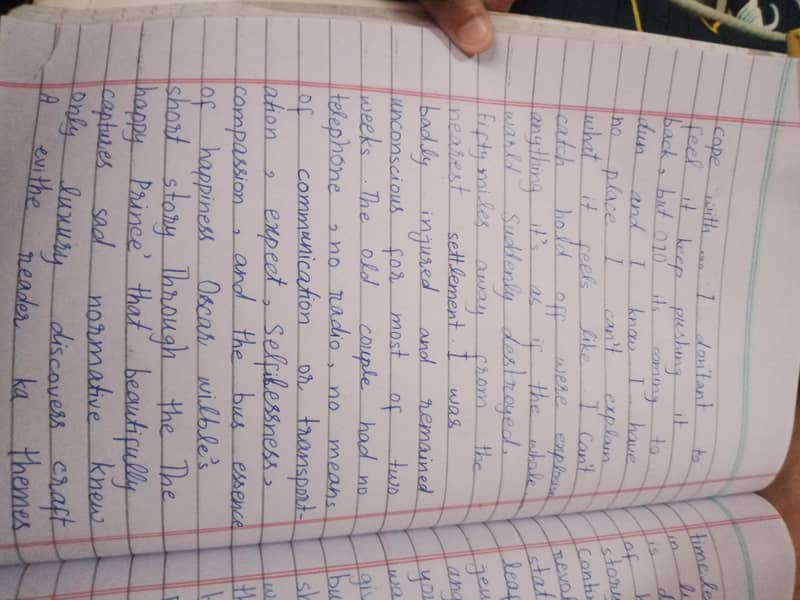 cope with me I don'tant to
feel it keep pushing it
back, but 070 its coming to
dun and I know I have
no place I can't explain
what it feels like. I can't
catch hold off were
anything it's as if the whole
world suddenly destroyed.
fifty miles away from the
nearest settlement. I was
badly injured and remained
unconscious for most of two
weeks. The old couple had no
telephone, no radio, no means
of communication or transport-
ation, expect, Selflessness,
compassion, and the bus essence
of happiness Oscar wilble's
short story Through the The
happy Prince' that beautifully
captures sad normative knew
only luxury discovess craft
A evithe reader ka themes
timele
in li
is d
of h
story
contin
revol
stat
leat
jew
and
you
wa
giv
bu
sh
w
th